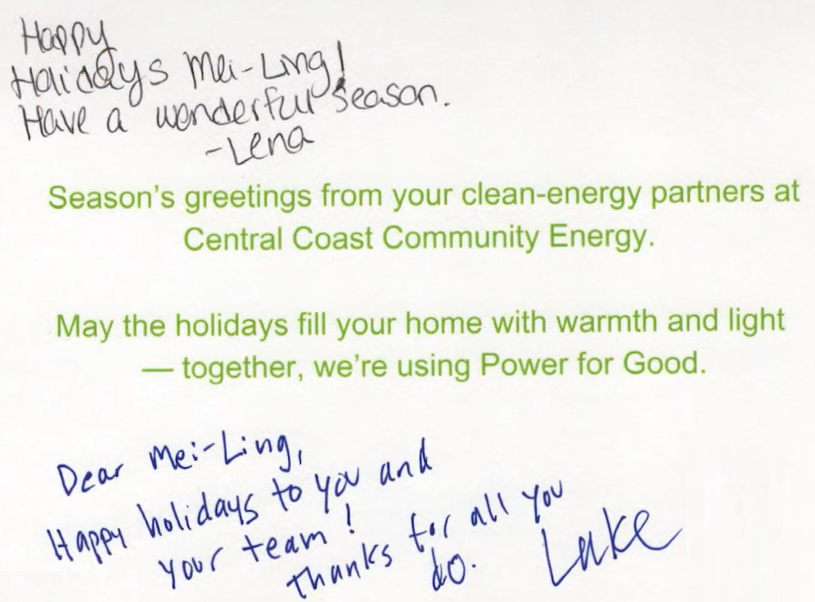 Happy
Holidays Mei-Ling!
Have a wonderful season.
-Lena
Season's greetings from your clean-energy partners at
Central Coast Community Energy.
May the holidays fill your home with warmth and light
— together, we're using Power for Good.
Dear Mei-Ling,
Happy holidays to you and
your team!
Thanks for all you
do.
Luke